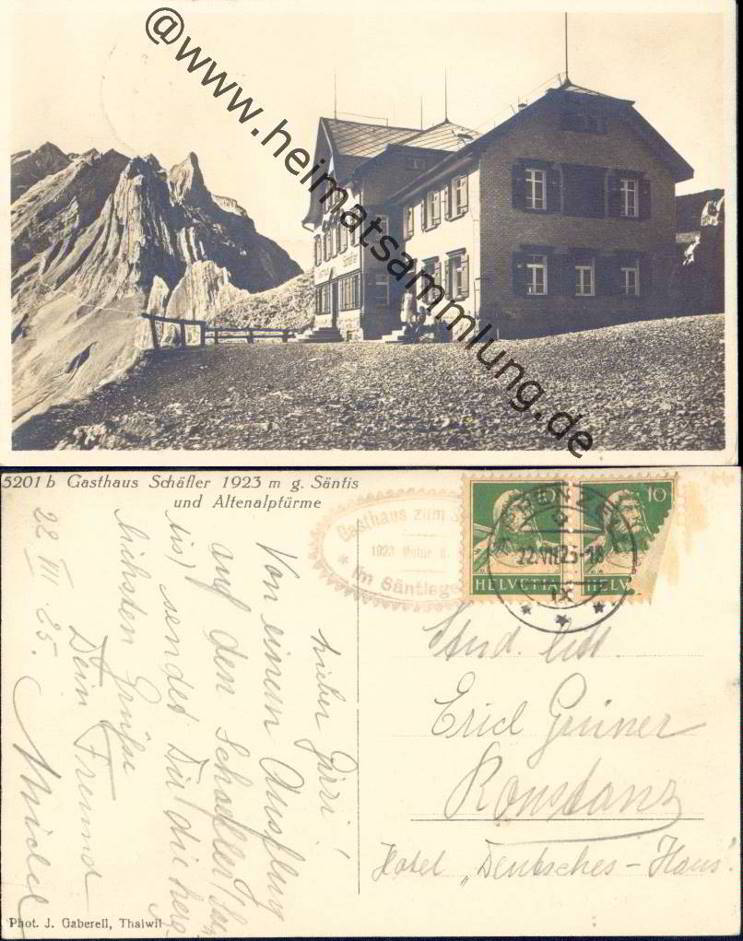 @www.heimatsammlung.de
5201 b Gasthaus Schäfler 1923 m g. Säntis
und Altenalptürme
Gasthaus zum
1923 Meter
Im Säntisge
10
HELVETIA
10
HELV
APPENZELL
22.VII.25-18
IX
22. VII. 25.
Lieber
Von einem Ausflug
auf den Schäfler
tis) sendet Dir die herz-
lichsten Grüße
Dein Freund
Stud.
Erich Gruner
Konstanz
Hotel „Deutsches-Haus"
Phot. J. Gaberell, Thalwil